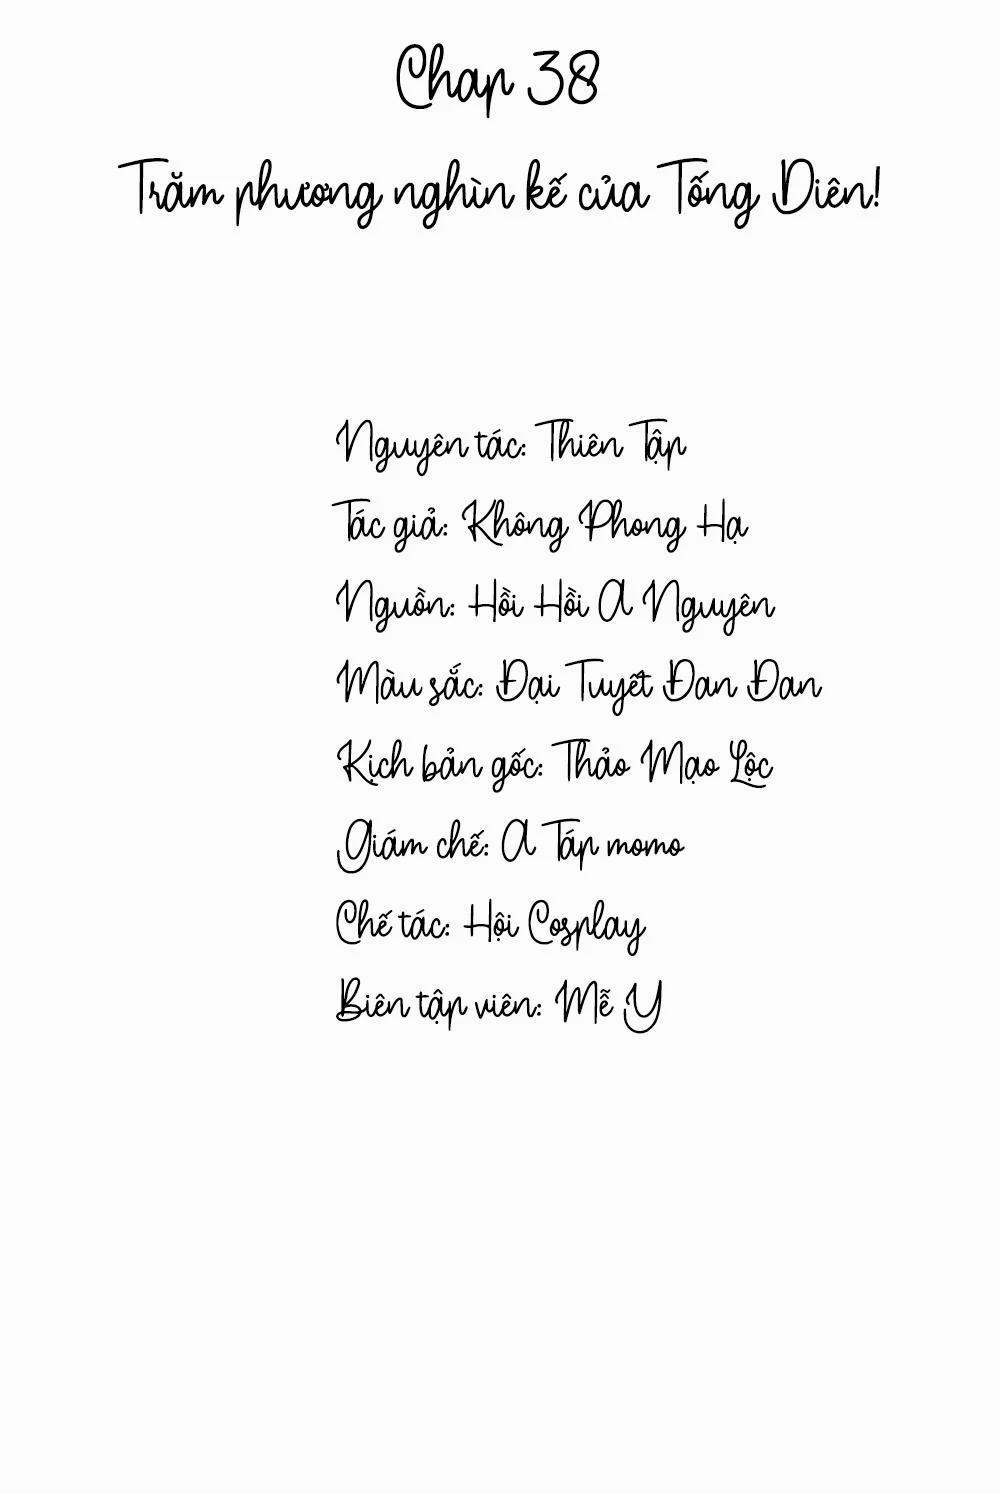 Chap 38
Trăm phương nghìn kế của Tống Diên!
Nguyên tác: Thiên Tập
Tác giả: Không Phong Hạ
Nguồn: Hồi Hồi A Nguyên
Màu sắc: Đại Tuyết Đan Đan
Kịch bản gốc: Thảo Mạo Lộc
Giám chế: A Táp momo
Chế tác: Hội Cosplay
Biên tập viên: Mễ Y